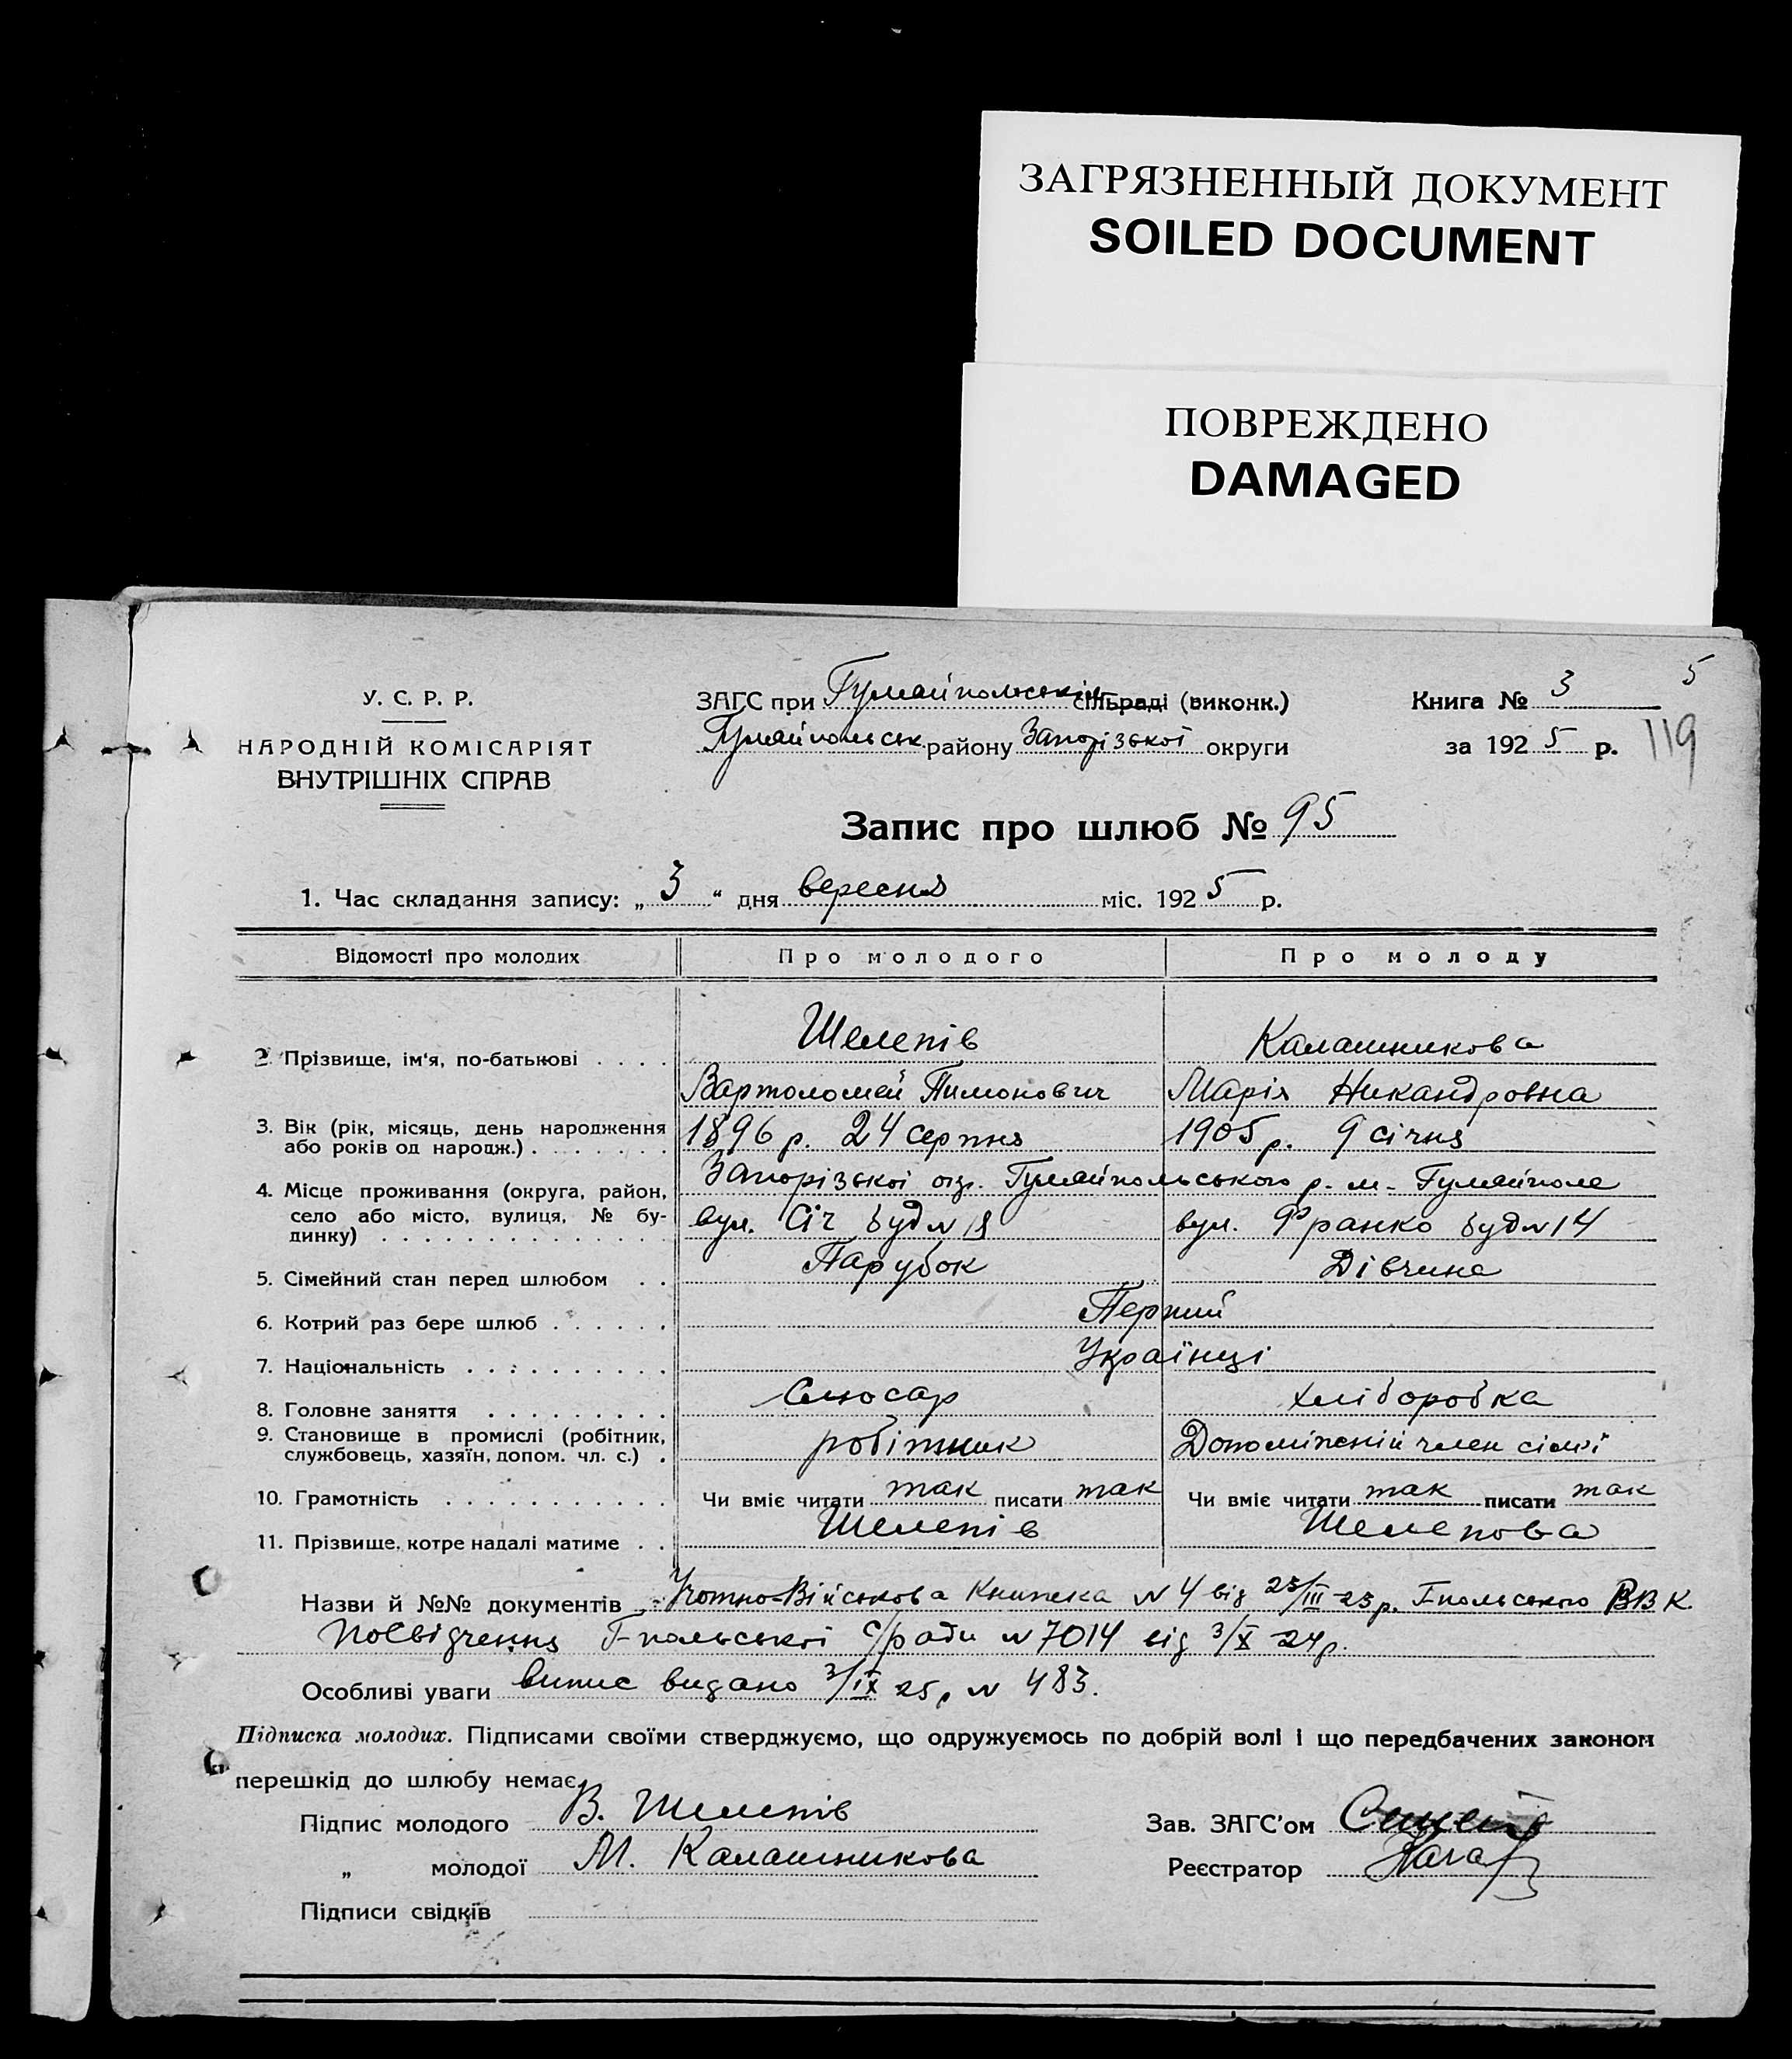 ЗАГРЯЗНЕННЫЙ ДОКУМЕНТ
SOILED DOCUMENT
ПОВРЕЖДЕНО
DAMAGED
5
У. С. Р. Р.
НАРОДНІЙ КОМІСАРІЯТ
ВНУТРІШНІХ СПРАВ
ЗАГС при Гуляйпольськім сільраді (виконк.)
Гуляйпольськ. району Запорізької округи
Книга № 3
за 1925 р.
119
Запис про шлюб № 95
1. Час складання запису: „3“ дня вересня міс. 1925 р.
Відомості про молодих Про молодого Про молоду
2. Прізвище, ім'я, по-батькові . . . . Шелепів Калашникова
Вартоломей Тимонович Марія Никандровна
3. Вік (рік, місяць, день народження або років од народж.) . . . . . . . 1896 р. 24 серпня 1905 р. 9 січня
4. Місце проживання (округа, район, село або місто, вулиця, № будинку) . . . . . . . . . . . . . . Запорізької окр. Гуляйпольського р. м. Гуляйполе
вул. Січ буд № вул. Франко буд № 14
5. Сімейний стан перед шлюбом . . Парубок Дівчина
6. Котрий раз бере шлюб . . . . . . Перший
7. Національність . . . . . . . . . . Українці
8. Головне заняття . . . . . . . . . Слюсар хліборобка
9. Становище в промислі (робітник, службовець, хазяїн, допом. чл. с.) . робітник член сімї
10. Грамотність . . . . . . . . . . . Чи вміє читати так писати так Чи вміє читати так писати так
11. Прізвище, котре надалі матиме . . Шелепів Шелепова
Назви й №№ документів Учотно-Військова Книжка № 4 від 23/III-23 р. Г-польського РВК.
Посвідчення Г-польської с/ради № 7014 від 3/X 24 р.
Особливі уваги випис видано 3/IX 25 р № 483.
Підписка молодих. Підписами своїми стверджуємо, що одружуємось по добрій волі і що передбачених законом
перешкід до шлюбу немає.
Підпис молодого В. Шелепів
Зав. ЗАГС'ом
„ молодої М. Калашникова
Реєстратор
Підписи свідків